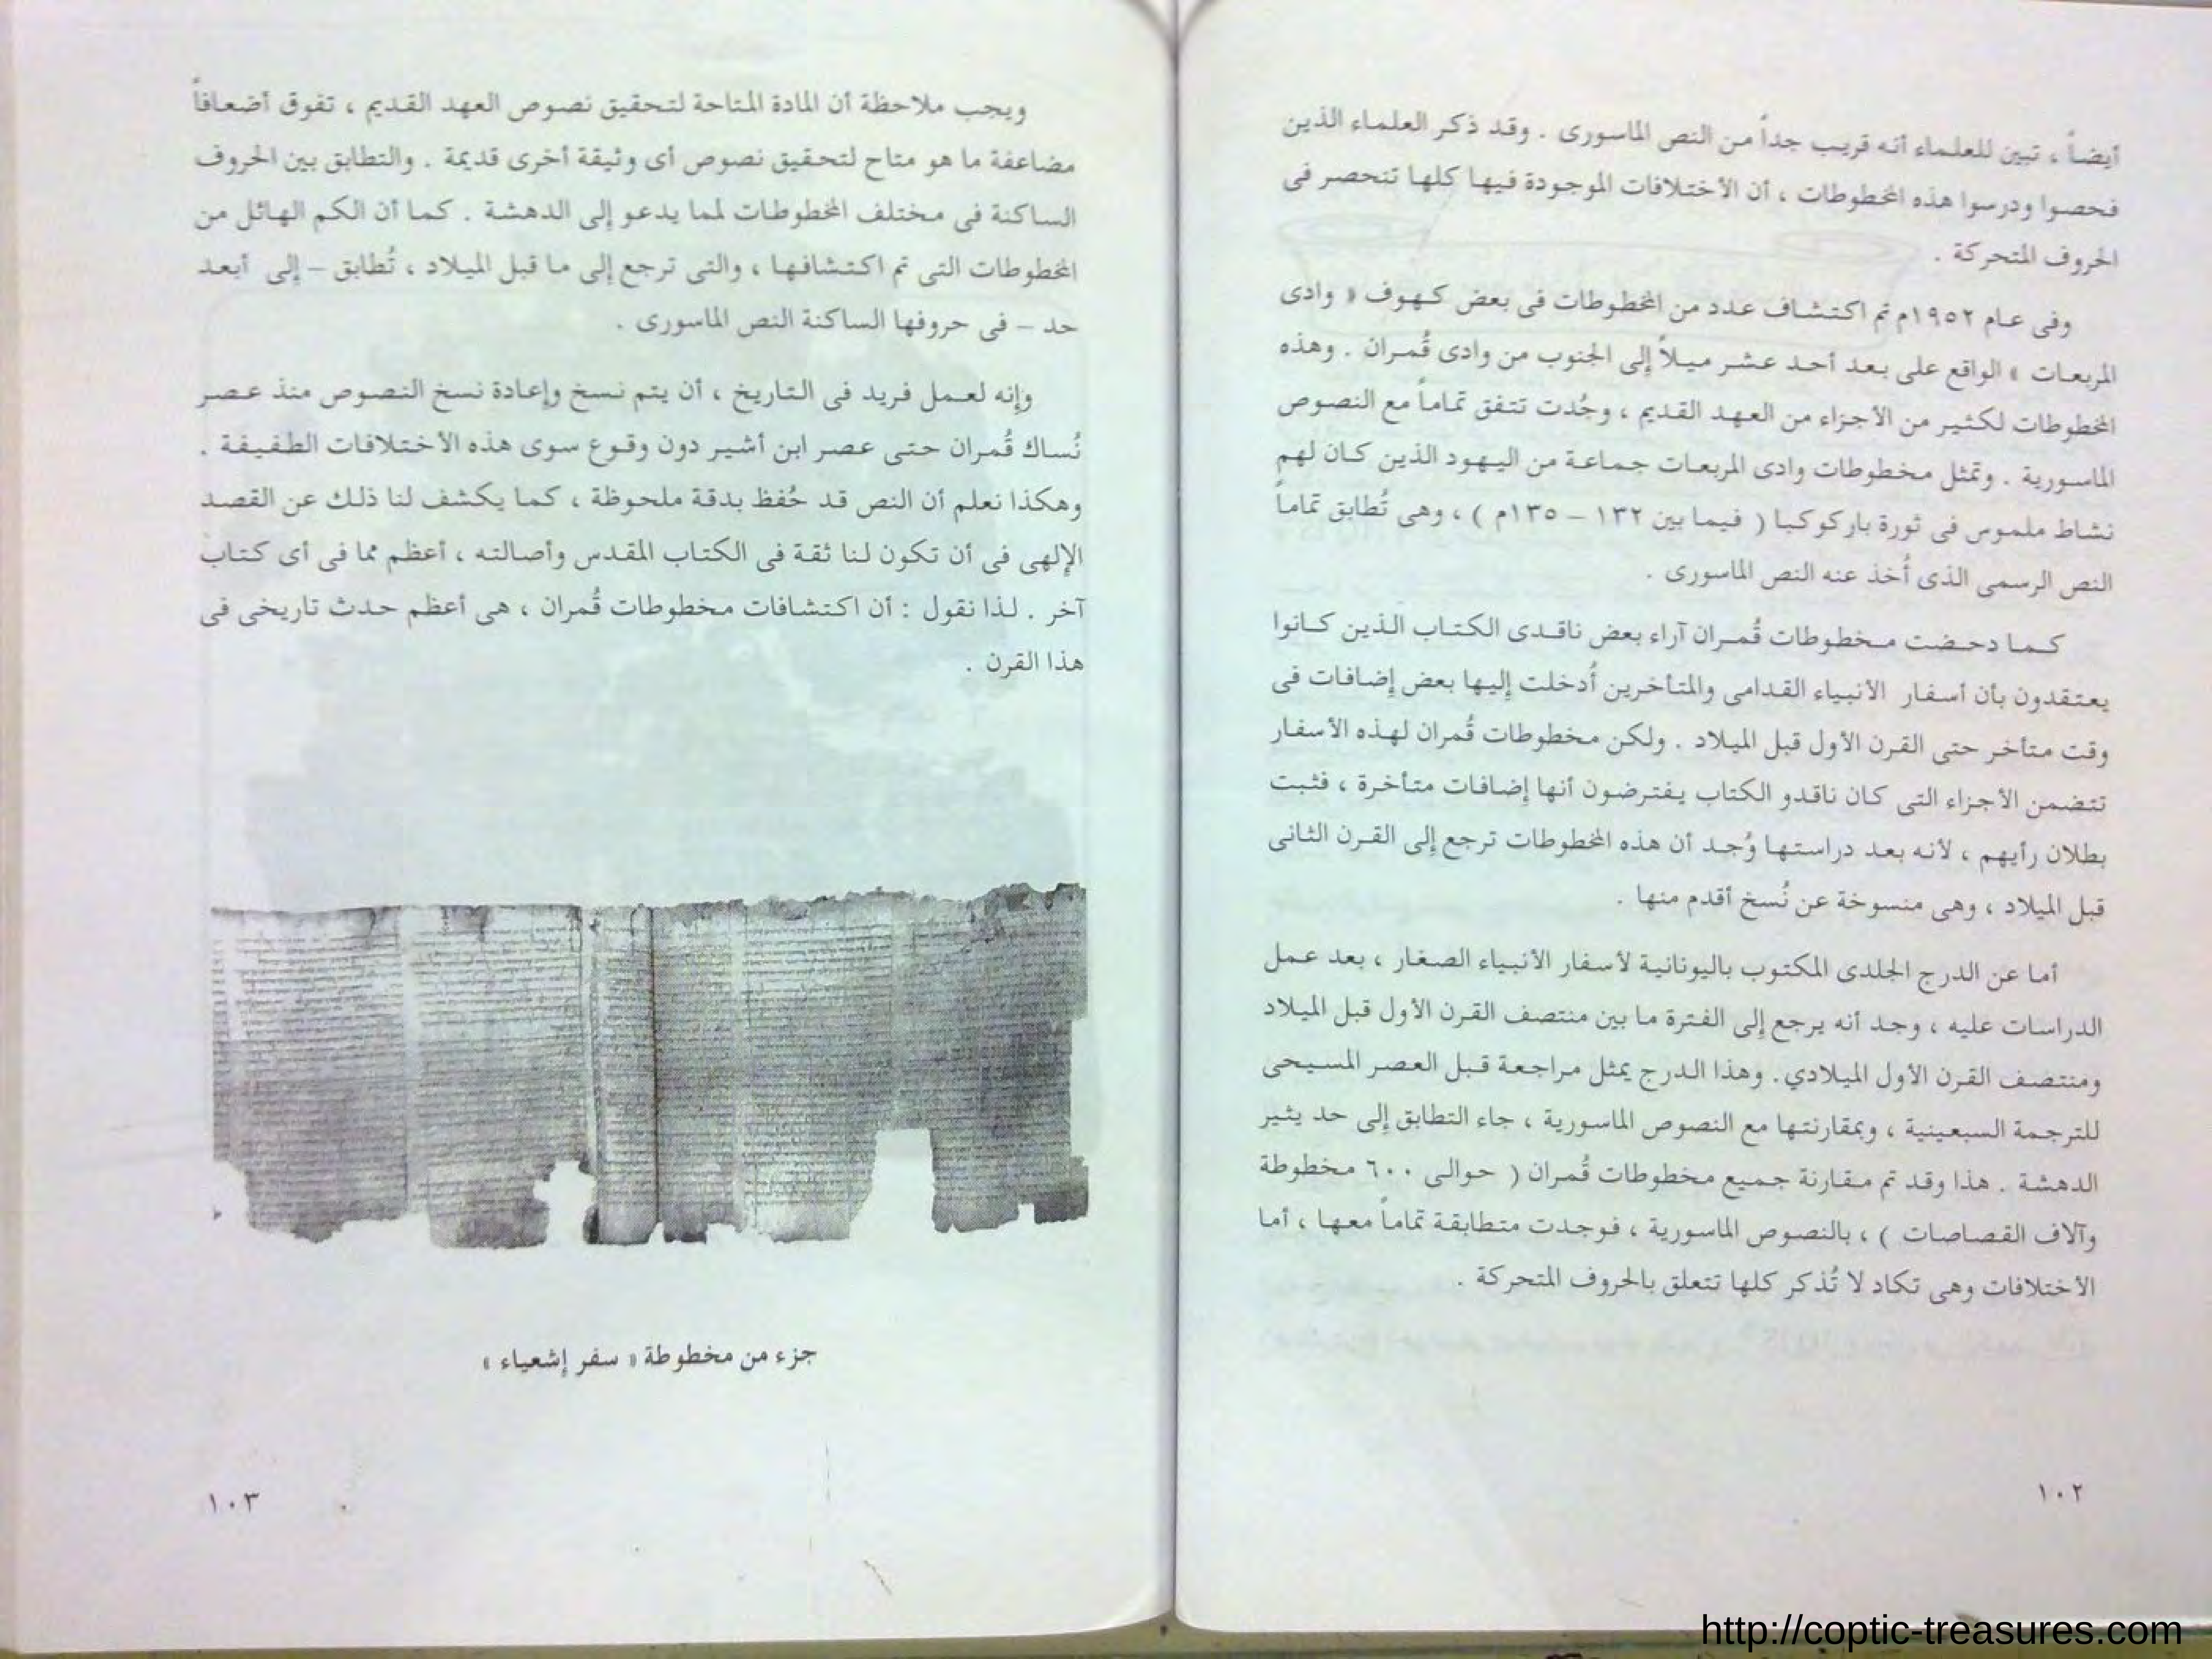 أيضاً ، تبين للعلماء أنه قريب جداً من النص الماسورى . وقد ذكر العلماء الذين
فحصوا ودرسوا هذه المخطوطات ، أن الأختلافات الموجودة فيها كلها تنحصر فى
الحروف المتحركة .
وفى عام ١٩٥٢م تم اكتشاف عدد من المخطوطات فى بعض كهوف « وادى
المربعات » الواقع على بعد أحد عشر ميلاً إلى الجنوب من وادى قُمران . وهذه
المخطوطات لكثير من الأجزاء من العهد القديم ، وجُدت تتفق تماماً مع النصوص
الماسورية . وتمثل مخطوطات وادى المربعات جماعة من اليهود الذين كان لهم
نشاط ملموس فى ثورة باركوكبا ( فيما بين ١٣٢ – ١٣٥م ) ، وهى تُطابق تماماً
النص الرسمى الذى أُخذ عنه النص الماسورى .
كما دحضت مخطوطات قُمران آراء بعض ناقدى الكتاب الذين كانوا
يعتقدون بأن أسفار الأنبياء القدامى والمتأخرين أُدخلت إليها بعض إضافات فى
وقت متأخر حتى القرن الأول قبل الميلاد . ولكن مخطوطات قُمران لهذه الأسفار
تتضمن الأجزاء التى كان ناقدو الكتاب يفترضون أنها إضافات متأخرة ، فثبت
بطلان رأيهم ، لأنه بعد دراستها وُجد أن هذه المخطوطات ترجع إلى القرن الثانى
قبل الميلاد ، وهى منسوخة عن نُسخ أقدم منها .
أما عن الدرج الجلدى المكتوب باليونانية لأسفار الأنبياء الصغار ، بعد عمل
الدراسات عليه ، وجد أنه يرجع إلى الفترة ما بين منتصف القرن الأول قبل الميلاد
ومنتصف القرن الأول الميلادي. وهذا الدرج يمثل مراجعة قبل العصر المسيحى
للترجمة السبعينية ، وبمقارنتها مع النصوص الماسورية ، جاء التطابق إلى حد يثير
الدهشة . هذا وقد تم مقارنة جميع مخطوطات قُمران ( حوالى ٦٠٠ مخطوطة
وآلاف القصاصات ) ، بالنصوص الماسورية ، فوجدت متطابقة تماماً معها ، أما
الأختلافات وهى تكاد لا تُذكر كلها تتعلق بالحروف المتحركة .
١٠٢
ويجب ملاحظة أن المادة المتاحة لتحقيق نصوص العهد القديم ، تفوق أضعافاً
مضاعفة ما هو متاح لتحقيق نصوص أى وثيقة أخرى قديمة . والتطابق بين الحروف
الساكنة فى مختلف المخطوطات لمما يدعو إلى الدهشة . كما أن الكم الهائل من
المخطوطات التى تم اكتشافها ، والتى ترجع إلى ما قبل الميلاد ، تُطابق – إلى أبعد
حد – فى حروفها الساكنة النص الماسورى .
وإنه لعمل فريد فى التاريخ ، أن يتم نسخ وإعادة نسخ النصوص منذ عصر
نُساك قُمران حتى عصر ابن أشير دون وقوع سوى هذه الأختلافات الطفيفة .
وهكذا نعلم أن النص قد حُفظ بدقة ملحوظة ، كما يكشف لنا ذلك عن القصد
الإلهى فى أن تكون لنا ثقة فى الكتاب المقدس وأصالته ، أعظم مما فى أى كتاب
آخر . لذا نقول : أن اكتشافات مخطوطات قُمران ، هى أعظم حدث تاريخى فى
هذا القرن .
جزء من مخطوطة « سفر إشعياء »
١٠٣
http://coptic-treasures.com